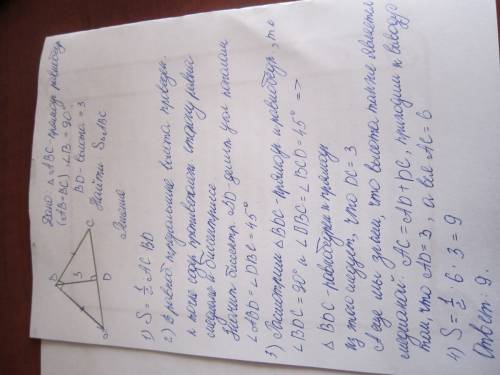 Дано: △ABC - прямоуг. равнобедр
(AB=BC) ∠B = 90°
BD - высота = 3
Найти S△ABC
B
3
h
C
D
Решение
1) S = ½ AC · BD
2) В равноб. треугольнике высота, проведен.
медиана и биссектриса
Значит биссектр. BD делит угол пополам
∠ABD = ∠DBC = 45°
3) Рассмотрим △BDC - прямоуг и равнобедр, т.к
∠BDC = 90° и ∠DBC = ∠BCD = 45° =>
△BDC - равнобедрен и прямоуг
из этого следует, что DC = 3
А еще мы знаем, что высота также является
медианой. AC = AD + DC, приходим к выводу
том, что AD = 3, а вся AC = 6
4) S = ½ · 6 · 3 = 9
Ответ: 9.